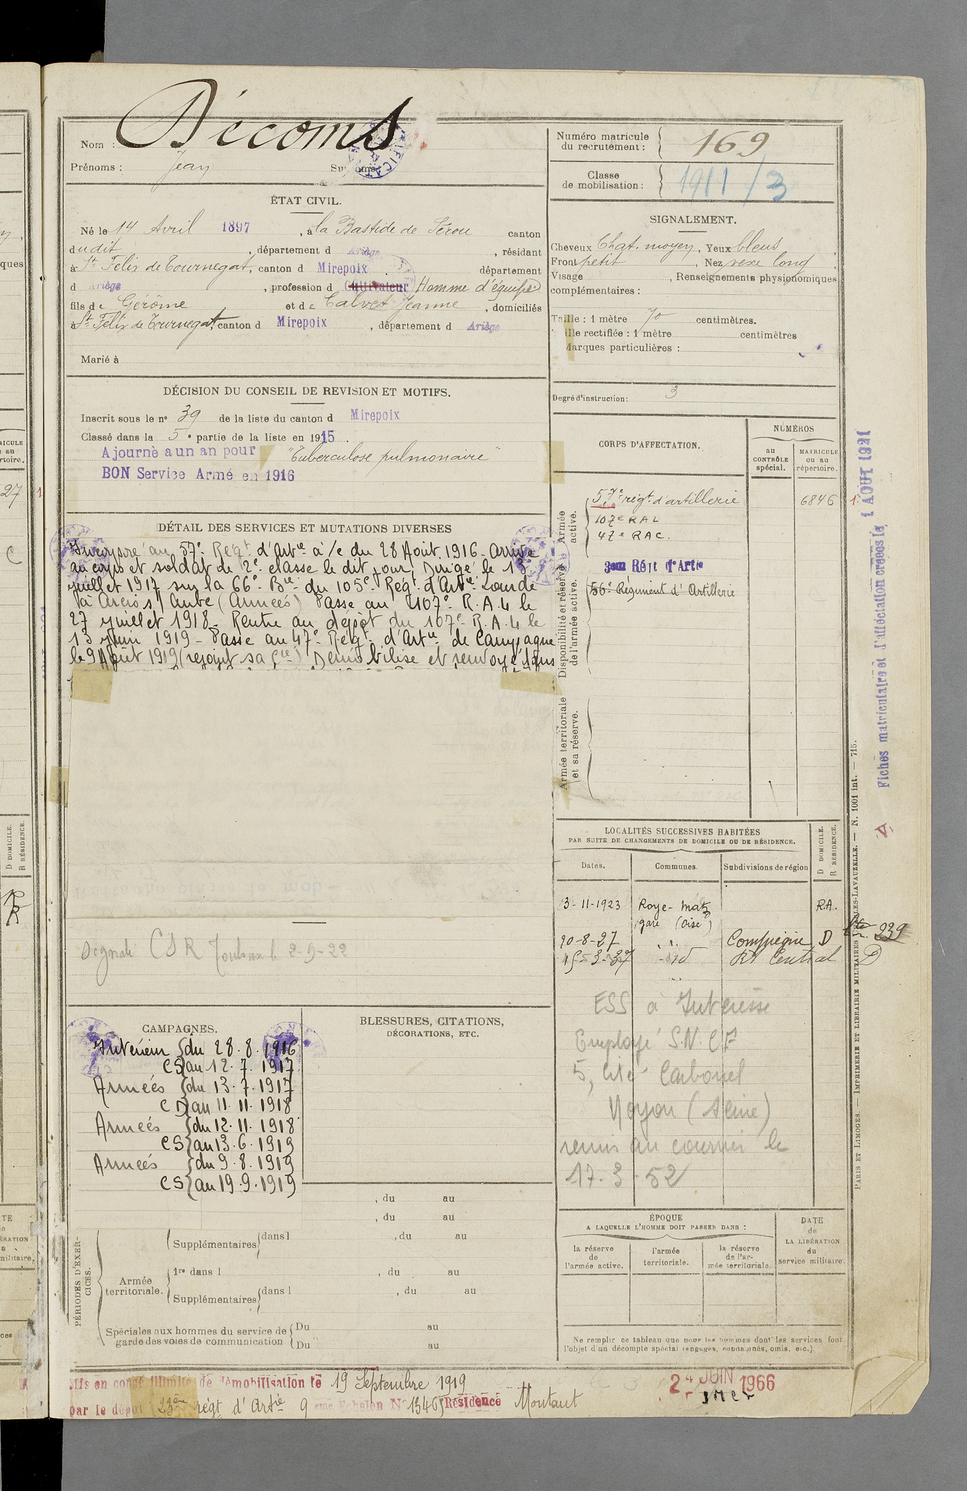 Nom : Décoms
Prénoms : Jean Surnoms :
ÉTAT CIVIL.
Né le 14 Avril 1897, à la Bastide de Sérou canton
dudit, département d Ariège, résidant
à St Félix de Tournegat, canton d Mirepoix, département
d Ariège, profession d Cultivateur Homme d'équipe
fils de Gerôme et de Calvet Jeanne, domiciliés
à St Félix de Tournegat canton d Mirepoix, département d Ariège
Marié à
DÉCISION DU CONSEIL DE REVISION ET MOTIFS.
Inscrit sous le n° 39 de la liste du canton d Mirepoix
Classé dans la 5e partie de la liste en 1915.
Ajourné a un an pour "Tuberculose pulmonaire"
BON Service Armé en 1916
DÉTAIL DES SERVICES ET MUTATIONS DIVERSES
Incorporé au 57e Regt d'Artie à /c du 28 Août 1916 - Arrivé
au corps et soldat de 2e classe le dit jour. Dirigé le 13
juillet 1917 sur la 66e Bie du 105e Regt d'Artie Lourde
à Arcis s/ Aube (Armées) Passe au 107e R.A.L le
27 juillet 1918 - Rentre au dépôt du 107e R.A.L le
13 juin 1919 - Passe au 47e Regt d'Artie de Campagne
le 9 Août 1919 (rejoint sa Cie) Démobilisé et renvoyé dans
CSR Toulouse le 2-9-22
CAMPAGNES.
Intérieur du 28.8.1916
CS au 12.7.1917
Armées du 13.7.1917
CD au 11.11.1918
Armées du 12.11.1918
CS au 13.6.1919
Armées du 9.8.1919
CS au 19.9.1919
BLESSURES, CITATIONS,
DÉCORATIONS, ETC.
, du au
, du au
PÉRIODES D'EXERCICES.
Supplémentaires dans l , du au
Armée territoriale.
1re dans l , du au
Supplémentaires dans l , du au
Spéciales aux hommes du service de
garde des voies de communication
Du au
Du au
Mis en congé illimité de démobilisation le 19 Septembre 1919
par le dépôt 23e régt d'Artie 9 eme Echelon N° 1546 Résidence Montaut
Numéro matricule
du recrutement : 169
Classe
de mobilisation : 1911/3
SIGNALEMENT.
Cheveux Chat. moyen Yeux bleus
Front petit, Nez vexe long
Visage , Renseignements physionomiques
complémentaires :
Taille : 1 mètre 70 centimètres.
Taille rectifiée : 1 mètre centimètres
Marques particulières :
Degré d'instruction : 3
CORPS D'AFFECTATION.
NUMÉROS
au
CONTRÔLE
spécial.
MATRICULE
ou au
répertoire.
Armée
active.
57e régt d'artillerie 6846
107e RAL
47e RAC.
Disponibilité et réserve
de l'armée active.
3eme Régt d'Artie
56e Régiment d'Artillerie
Armée territoriale
et sa réserve.
LOCALITÉS SUCCESSIVES HABITÉES
PAR SUITE DE CHANGEMENTS DE DOMICILE OU DE RÉSIDENCE.
Dates. Communes. Subdivisions de région
D DOMICILE.
R RÉSIDENCE.
3-11-1923 Roye-Matz RA.
gare (Oise)
20-8-27 Compiègne D
15-3-37 -id- Rt Central D
239
ESS à
Employé S.N.C.F
5, cité Carbonel
Noyon
remis au courrier le
17-3-52
ÉPOQUE
A LAQUELLE L'HOMME DOIT PASSER DANS :
la réserve
de
l'armée active.
l'armée
territoriale.
la réserve
de l'ar-
mée territoriale.
DATE
de
LA LIBÉRATION
du
service militaire.
Ne remplir ce tableau que pour les hommes dont les services font
l'objet d'un décompte spécial (engagés, condamnés, omis, etc.)
24 JUIN 1966
Fiches matriculaire et d'affectation créées le 1 AOUT 1921
PARIS ET LIMOGES. — IMPRIMERIE ET LIBRAIRIE MILITAIRES CHARLES-LAVAUZELLE. — N. 1001 int. — 715.